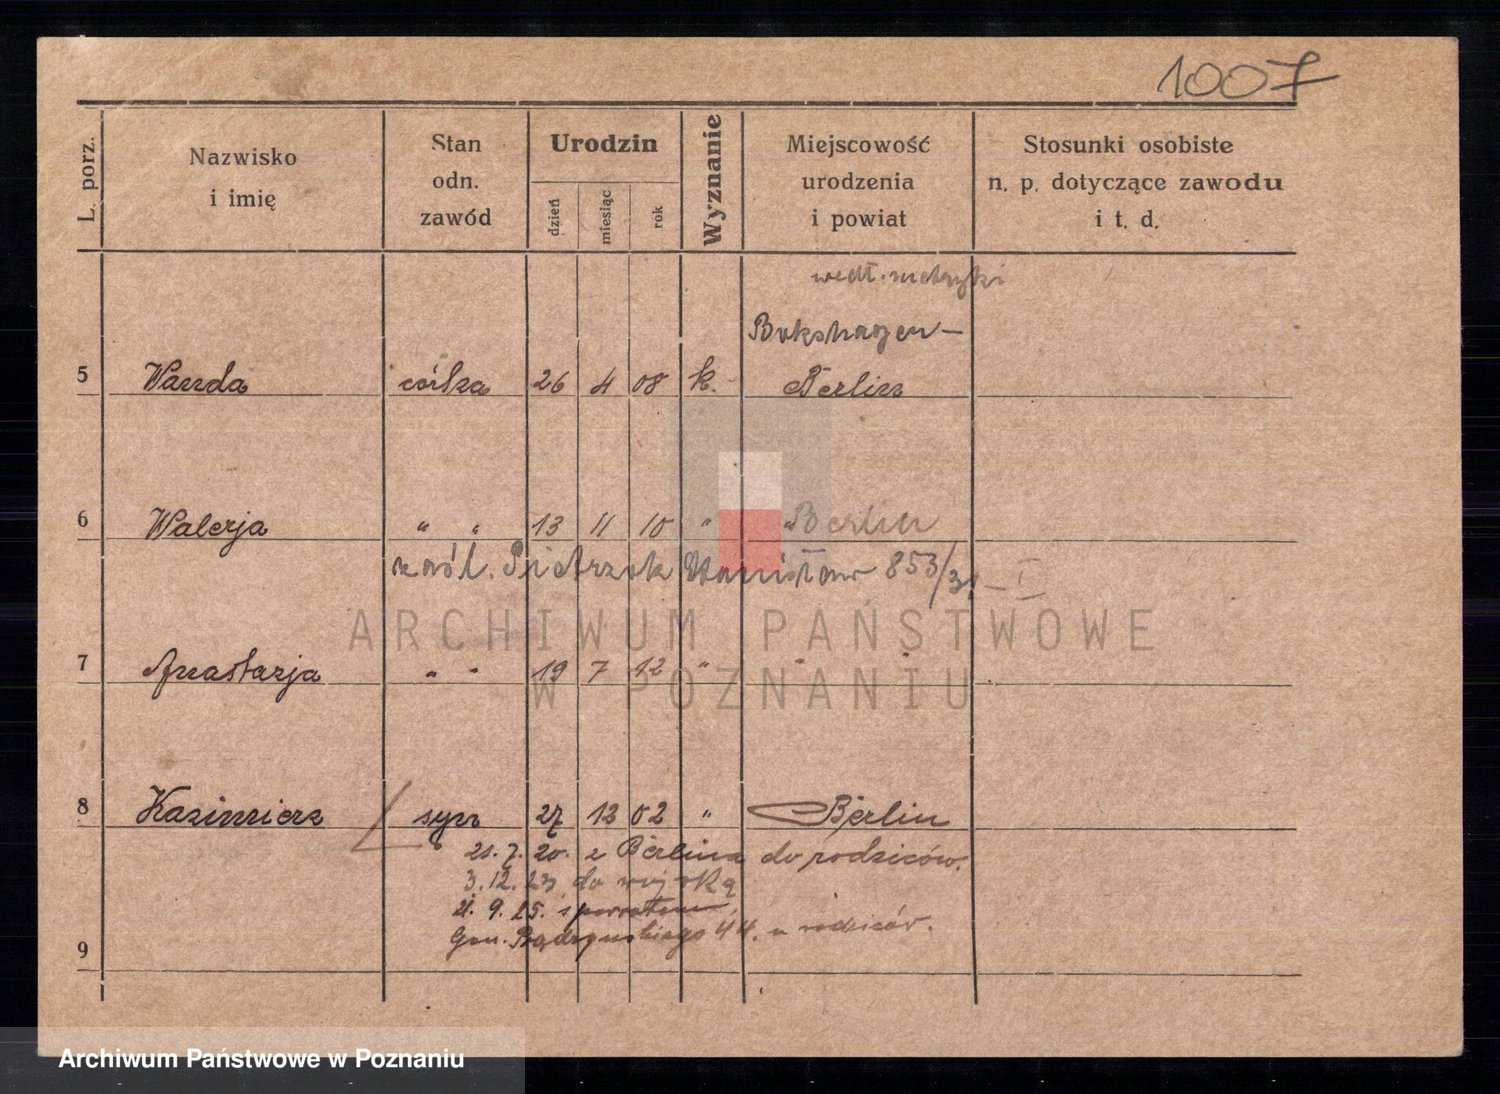 1007
L. porz.
Nazwisko
i imię
Stan
odn.
zawód
Urodzin
dzień
miesiąc
rok
Wyznanie
Miejscowość
urodzenia
i powiat
Stosunki osobiste
n. p. dotyczące zawodu
i t. d.
wedł. metryki
Bokshagen-
5 Wanda córka 26 4 08 k. Berlin
6 Walerja " " 13 11 10 " "Berlin
zaśl. Pietrzak Stanisław 853/31 - I
7 Anastazja " " 19 7 12 " " "
8 Kazimierz syn 27 12 02 " Berlin
21. 7. 20. z Berlina do rodziców.
3. 12. 23 do wojska
21. 9. 25. z powrotem
9
Gen. Prądzyńskiego 44. u rodziców.
ARCHIWUM PAŃSTWOWE
W POZNANIU
Archiwum Państwowe w Poznaniu